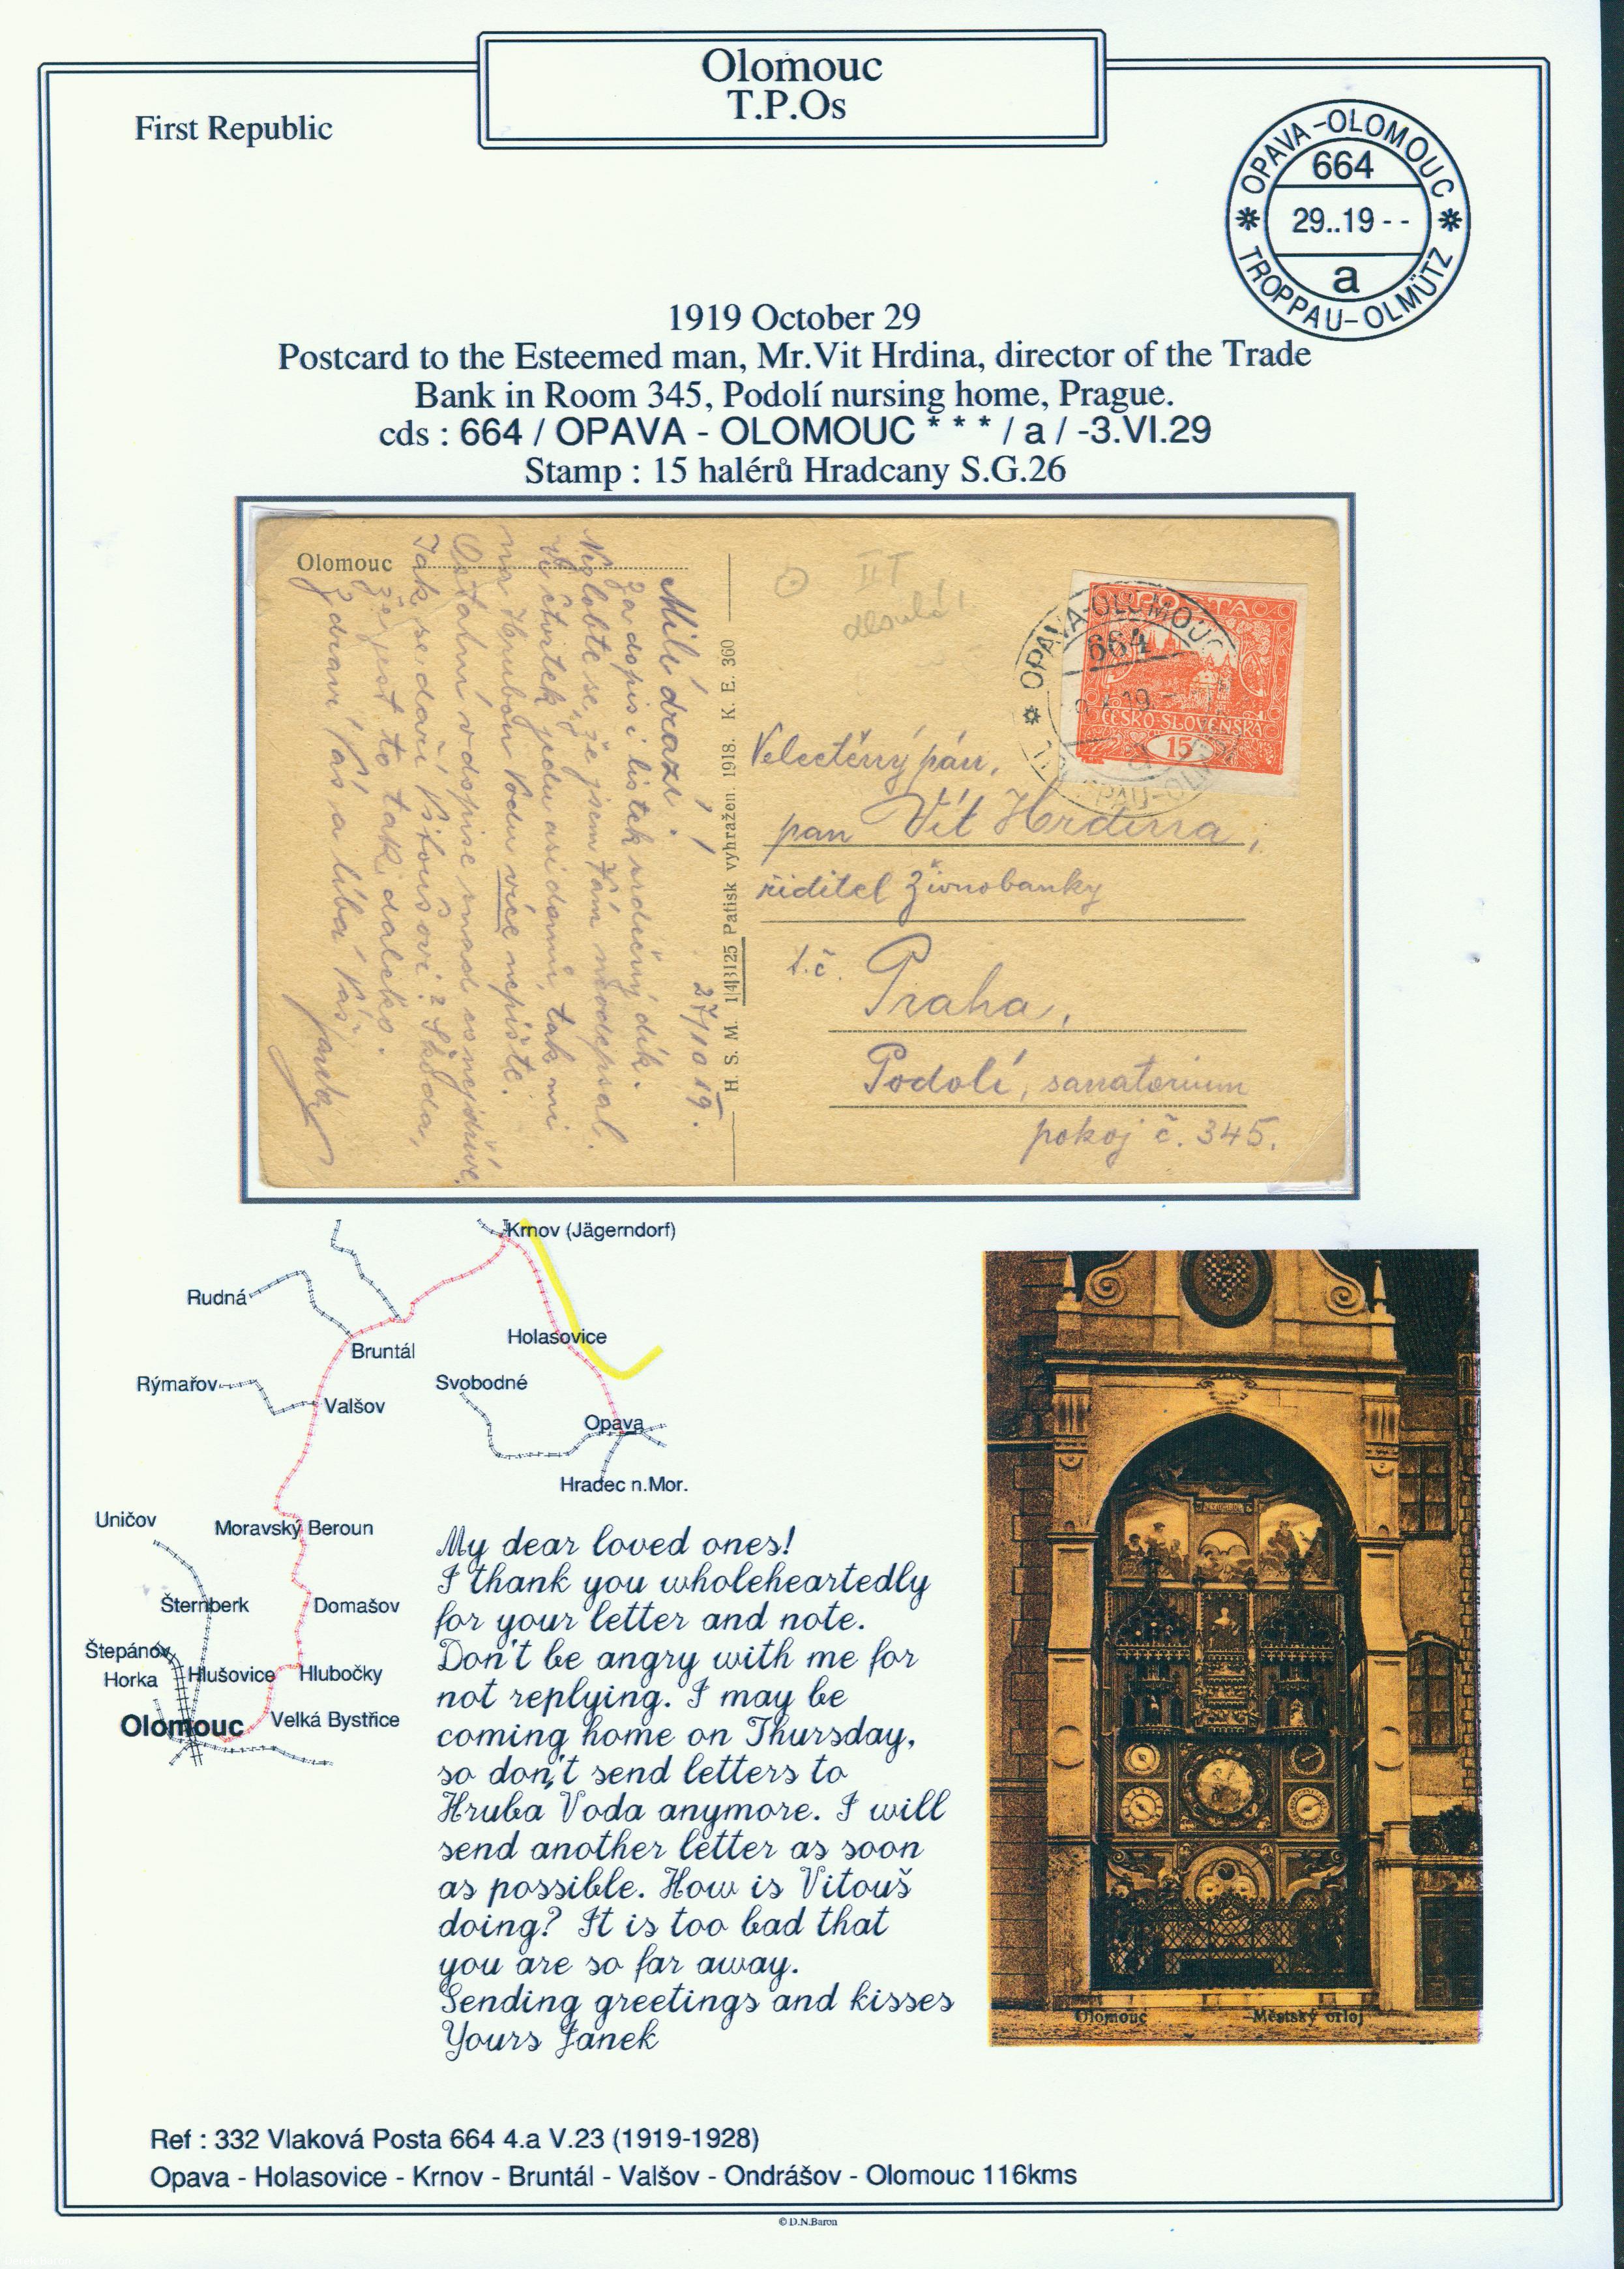 Olomouc
T.P.Os
First Republic
OPAVA-OLOMOUC
664
29..19 - -
a
TROPPAU-OLMÜTZ
1919 October 29
Postcard to the Esteemed man, Mr.Vit Hrdina, director of the Trade
Bank in Room 345, Podolí nursing home, Prague.
cds : 664 / OPAVA - OLOMOUC * * * / a / -3.VI.29
Stamp : 15 halérů Hradcany S.G.26
Olomouc
27/10 19.
Milí drazí!
Za dopis i lístek srdečný dík.
Nezlobte se, že jsem Vám neodepsal.
Ve čtvrtek jedu asi domů, tak mi
na Hrubou Vodu více nepište.
Ostatní v dopise snad co nejdříve.
Jak se daří Vitoušovi? Škoda,
že jest to tak daleko.
Zdraví Vás a líbá Váš
Janek
H. S. M. 143125 Patisk vyhražen. 1918. K. E. 360
II T
dlouhá!
OPAVA-OLOMOUC
664
POŠTA
ČESKO-SLOVENSKÁ
15
Velectěný pán,
pan Vít Hrdina,
řiditel Živnobanky
t.č. Praha,
Podolí, sanatorium
pokoj č. 345.
Krnov (Jägerndorf)
Rudná
Holasovice
Bruntál
Rýmařov
Svobodné
Valšov
Opava
Hradec n.Mor.
Uničov
Moravský Beroun
Šternberk
Domašov
Štepánov
Horka
Hlušovice
Hlubočky
Olomouc
Velká Bystřice
My dear loved ones!
I thank you wholeheartedly
for your letter and note.
Don't be angry with me for
not replying. I may be
coming home on Thursday,
so don,t send letters to
Hruba Voda anymore. I will
send another letter as soon
as possible. How is Vitouš
doing? It is too bad that
you are so far away.
Sending greetings and kisses
Yours Janek
Olomouc Městský orloj
Ref : 332 Vlaková Posta 664 4.a V.23 (1919-1928)
Opava - Holasovice - Krnov - Bruntál - Valšov - Ondrášov - Olomouc 116kms
© D.N.Baron